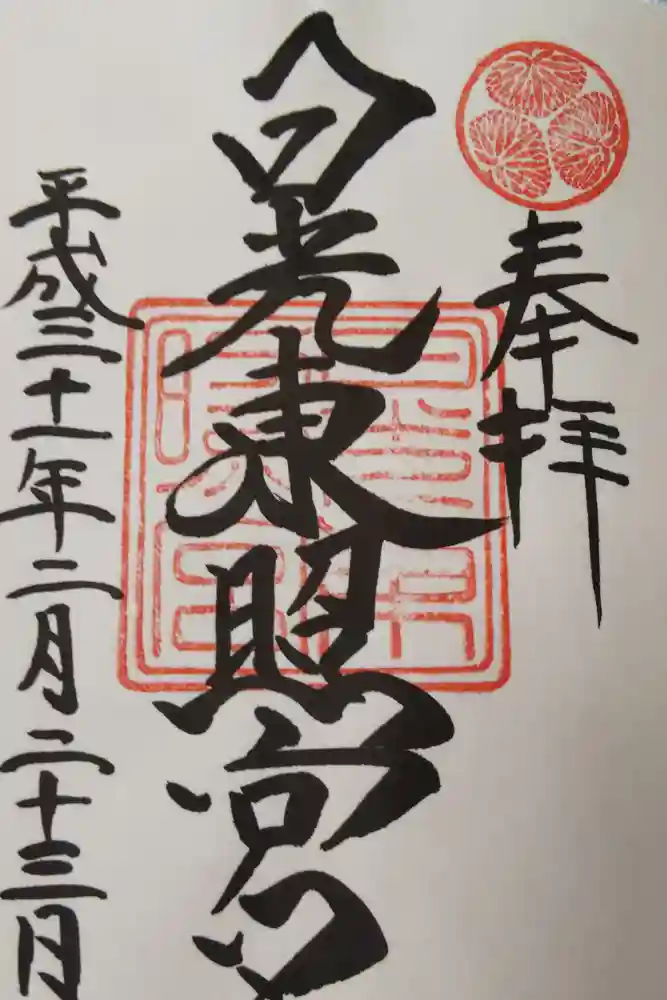 奉拝
日光東照宮
平成三十一年二月二十三日